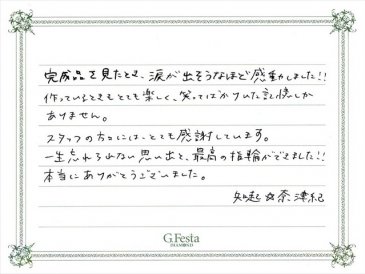 完成品を見たとき、涙が出そうなほど感動しました!!
作っているときもとても楽しく、笑ってばかりいた記憶しか
ありません。
スタッフの方々には、とても感謝しています。
一生忘れられない思い出と、最高の指輪ができました!!
本当にありがとうございました。
知起☆奈津紀
G.Festa
DIAMOND